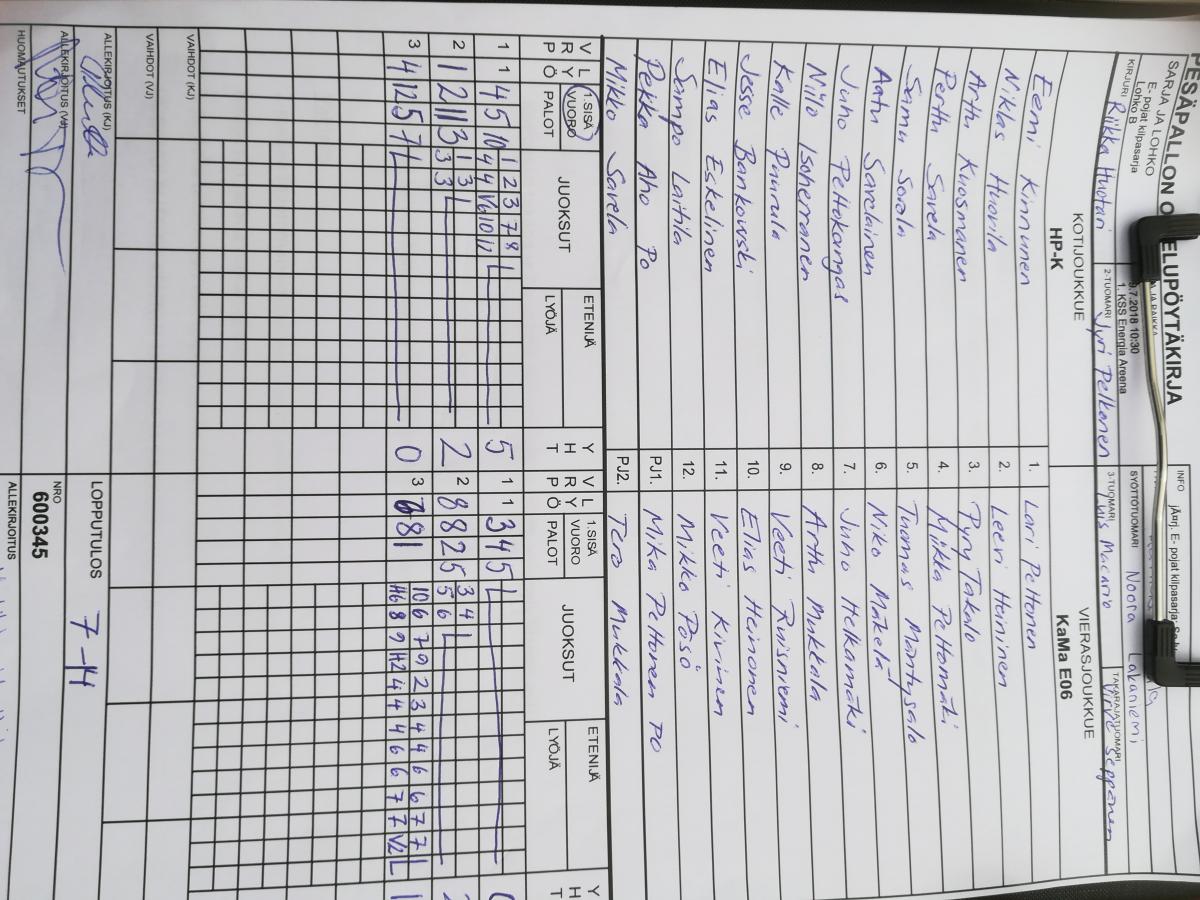 PESÄPALLON O ELUPÖYTÄKIRJA
SARJA JA LOHKO
E- pojat kilpasarja
Lohko B
9.7.2018 10:30
1. KSS Energia Areena
INFO
jÄ¤rj. E- pojat kilpasarja
SYÖTTÖTUOMARI Noora Lakaniemi
KIRJURI Riikka Huotari
2-TUOMARI Jyri Pelkonen
3-TUOMARI Macario
TAKARAJATUOMARI Virve Seppänen
KOTIJOUKKUE
HP-K
VIERASJOUKKUE
KaMa E06
Eemi Kinnunen 1. Lari Peltonen
Niklas Huovila 2. Leevi Heininen
Arttu Kuosmanen 3. Pyry Takalo
Perttu Savela 4. Miikka Peltomäki
Samu Sorala 5. Tuomas Mäntysalo
Aatu Savelainen 6. Niko Mäkelä
Juho Peltokangas 7. Juho Helkamäki
Niilo Isoherranen 8. Arttu Mukkala
Kalle Puurula 9. Veeti Ruisniemi
Jesse Bankowski 10. Elias Heinonen
Elias Eskelinen 11. Veeti Kivinen
Sampo Laitila 12. Mikko Posö
Pekka Aho Po PJ1. Mika Peltonen PO
Mikko Savela PJ2. Tero Mukkala
V R L Y P Ö
1.SISÄ VUORO
PALOT
JUOKSUT
ETENIJÄ
LYÖJÄ
Y H T
V R L Y P Ö
1.SISÄ VUORO
PALOT
JUOKSUT
ETENIJÄ
LYÖJÄ
Y H T
1 1 4 5 10 1 2 3 7 8
4 4 V6 10 12 5
1 1 3 4 5
2 1 2 11 3 1 3
3 3 2
2 8 8 2 5 3 4
5 6
3 4 12 5 7 0
3 8 1 10 6 7 9 2 3 4 4 6 6 7 7
H6 8 9 H2 4 4 4 6 6 7 7 V2
VAIHDOT (KJ)
VAIHDOT (VJ)
ALLEKIRJOITUS (KJ)
ALLEKIRJOITUS (VJ)
HUOMAUTUKSET
LOPPUTULOS 7-14
NRO
600345
ALLEKIRJOITUS